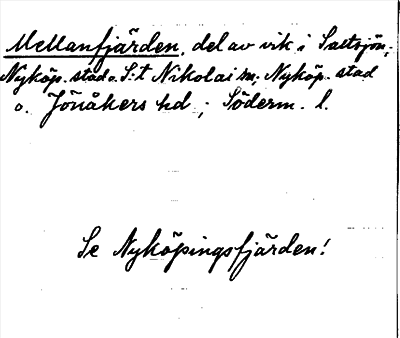 Mellanfjärden, del av vik i Saltsjön;
Nyköp. stad o. S:t Nikolai sn; Nyköp. stad
o. Jönåkers hd; Söderm. l.
Se Nyköpingsfjärden!